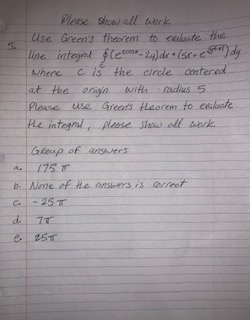 Please show all work
5. Use Green's theorem to evaluate the
line integral ∮c (e^cosx - 2y)dx + (5x + e^√(y²+1)) dy
where C is the circle centered
at the origin with radius 5
Please use Green's theorem to evaluate
the integral, please show all work.
Group of answers
a. 175 π
b. None of the answers is correct
c. - 25 π
d. 7π
e. 25π